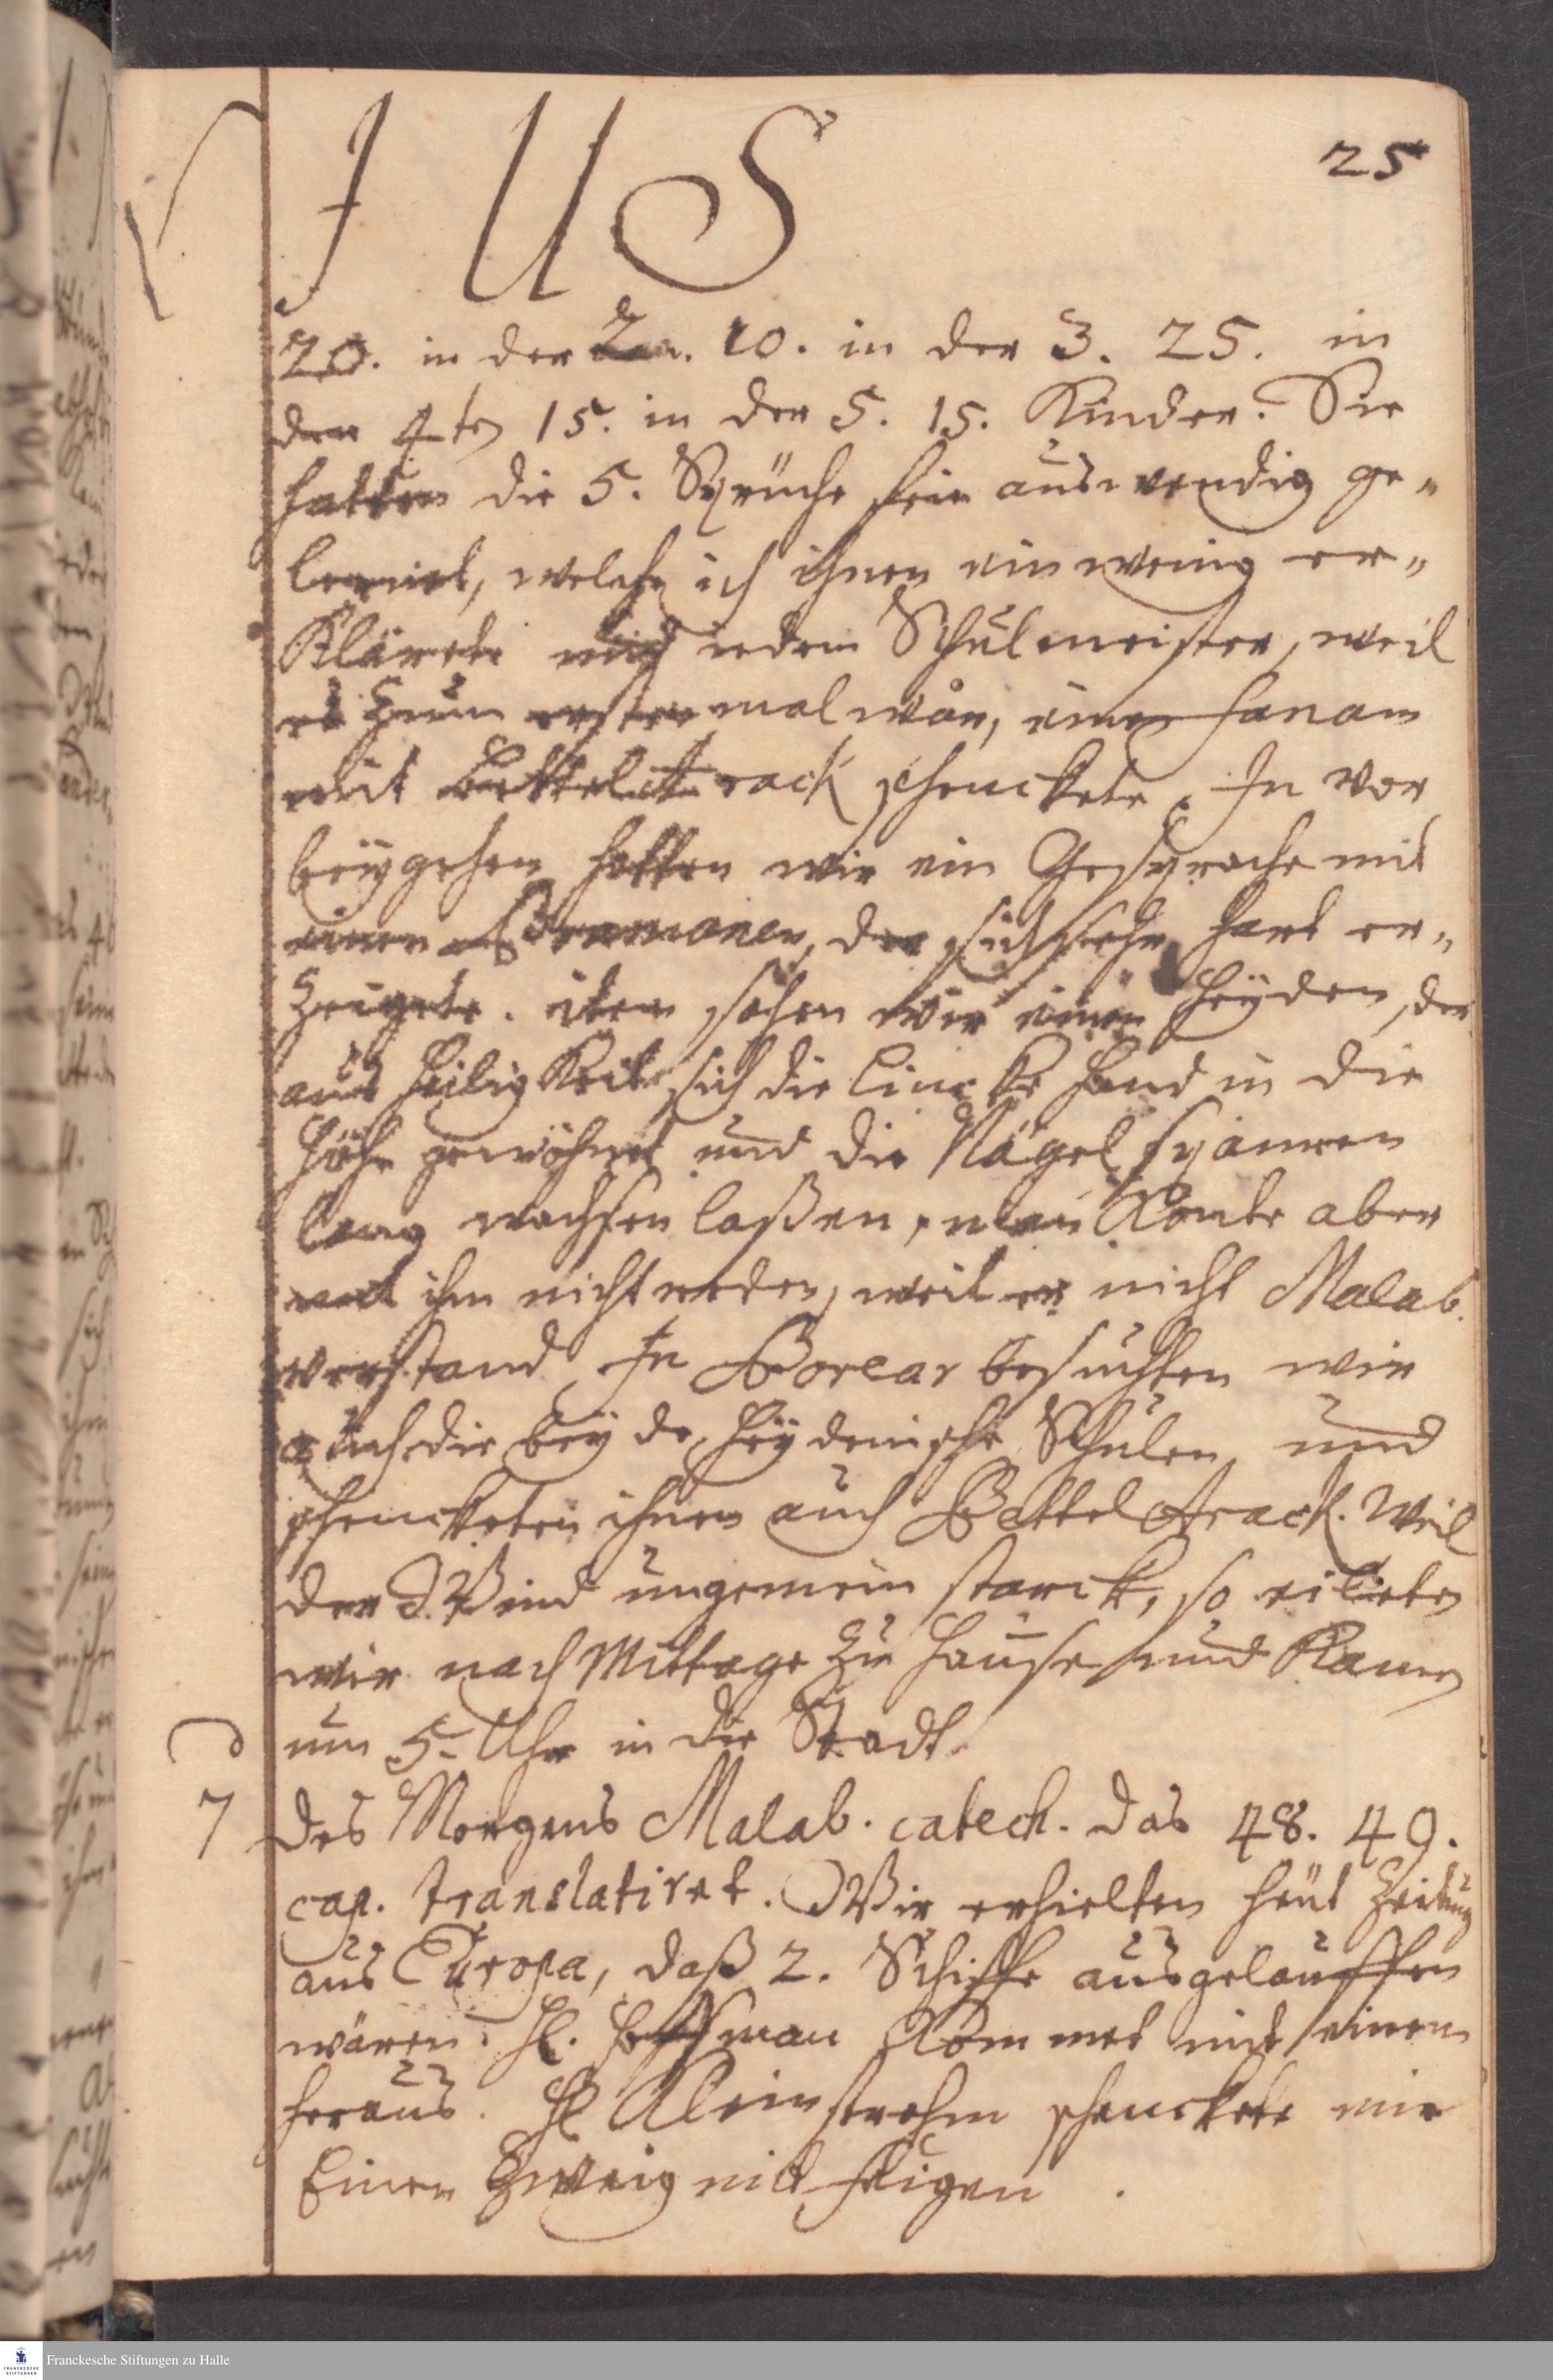 J U S
25
20. in der 2. 10. in der 3. 25. in
der 4ten 15. in der 5. 15. Kinder. Sie
hatten die 5. Sprüche fein auswendig ge-
lernet, welche ich ihnen ein wenig er-
klärete und iedem Schulmeister, weil
es zum ersten mal war, einen fanam
mit Bettel Arack schenckete. In vor
beygehen hatten wir ein Gespräche mit
einen Bramanen, der sich sehr hart er-
zeigete. item sahen wir einen Heyden, der
aus Heiligkeit sich die lincke Hand in die
Höhe gewöhnet und die Nägel spannen
lang wachsen laßen, man konte aber
mit ihm nicht reden, weil er nicht Malab.
verstand. In Borear besuchten wir
auch die beyde Heydenische Schulen und
schencketen ihnen auch Bettel Arack. Weil
der Wind ungemein starck, so eileten
wir nach Mittage zu Hause und kamen
um 5. Uhr in die Stadt.
7 Des Morgens Malab. catech. das 48. 49.
cap. translatiret. Wir erhielten heut Zeitung
aus Europa, daß 2. Schiffe ausgelauffen
wären. H. Hoffman kömmet mit einem
heraus. H. Kleinstrehm schenckete mir
Einen Zweig mit Feigen.
Franckesche Stiftungen zu Halle